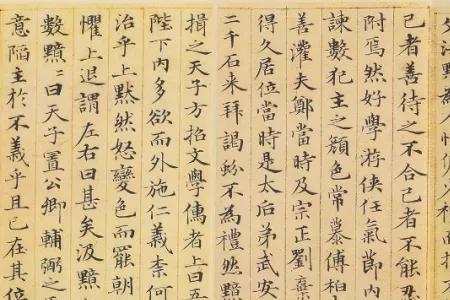 己者善待之不合己者不能忍
附焉然好學游俠任氣節內
諫數犯主之顏色常慕傅柏
善灌夫鄭當時及宗正劉棄
得久居位當時是太后弟武安
二千石来拜謁蚡不為禮然黯
揖之天子方招文學儒者上曰吾
陛下內多欲而外施仁義柰何
治乎上默然怒變色而罷朝
懼上退謂左右曰甚矣汲黯
數黯〻曰天子置公卿輔弼之
意陷主於不義乎且已在其位